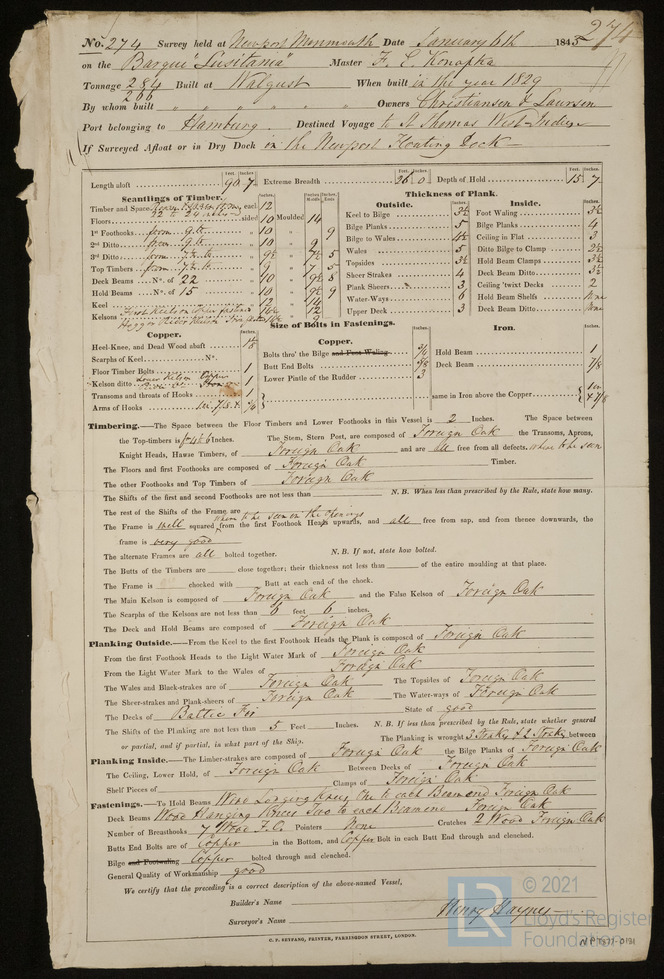 274
No. 274 Survey held at Newport Monmouth Date January 6th 1845
on the Barque "Lusitania" Master F. E. Konapka
Tonnage 284 Built at Walgust When built in the year 1829
266
By whom built " " " " " " " Owners Christiansen & Laursen
Port belonging to Hamburg Destined Voyage to St Thomas West Indies
If Surveyed Afloat or in Dry Dock in the Newport Floating Dock
Feet. Inches. Feet. Inches. Feet. Inches.
Length aloft 90 7 Extreme Breadth 26 0 Depth of Hold 15 7
Scantlings of Timber. Thickness of Plank.
Outside. Inside.
Timber and Space each 12 Keel to Bilge 3½ Foot Waling 3½
Floors 22 to 24 sided 10 Moulded 14 Bilge Planks 5 Bilge Planks 4
1st Foothooks from 9 to " 10 " 9 Bilge to Wales 4½ Ceiling in Flat 3
2nd Ditto from 9 to " 10 " 9 Wales 5 Ditto Bilge to Clamp 2½
3rd Ditto from 7½ to " 9½ " 7½ 5 Topsides 3½ Hold Beam Clamps 3½
Top Timbers from 7½ to " 9 " 7 5 Sheer Strakes 4 Deck Beam Ditto 3½
Deck Beams No. of 22 " 10 " 9½ 8 Plank Sheers 3 Ceiling 'twixt Decks 2
Hold Beams No. of 15 " 10 " 9½ 9 Water-Ways 6 Hold Beam Shelfs None
Keel " 12 " 14 Upper Deck 3 Deck Beam Ditto None
Kelsons
Size of Bolts in Fastenings.
Copper. Copper. Iron.
Heel-Knee, and Dead Wood abaft
Scarphs of Keel No. Bolts thro' the Bilge and Foot Waling Hold Beam 1
Floor Timber Bolts 1 Butt End Bolts Deck Beam 7/8
Kelson ditto 1 Lower Pintle of the Rudder 3
Transoms and throats of Hooks 1 same in Iron above the Copper
Arms of Hooks
Timbering.—The Space between the Floor Timbers and Lower Foothooks in this Vessel is 2 Inches. The Space between
the Top-timbers is fr 4 to 6 Inches. The Stem, Stern Post, are composed of Foreign Oak the Transoms, Aprons,
Knight Heads, Hawse Timbers, of Foreign Oak and are all free from all defects. where to be seen
The Floors and first Foothooks are composed of Foreign Oak Timber.
The other Foothooks and Top Timbers of Foreign Oak
The Shifts of the first and second Foothooks are not less than N. B. When less than prescribed by the Rule, state how many.
The rest of the Shifts of the Frame are where to be seen in the openings
The Frame is well squared from the first Foothook Heads upwards, and all free from sap, and from thence downwards, the
frame is very good
The alternate Frames are all bolted together. N. B. If not, state how bolted.
The Butts of the Timbers are close together; their thickness not less than of the entire moulding at that place.
The Frame is chocked with Butt at each end of the chock.
The Main Kelson is composed of Foreign Oak and the False Kelson of Foreign Oak
The Scarphs of the Kelsons are not less than 6 feet 6 inches.
The Deck and Hold Beams are composed of Foreign Oak
Planking Outside.—From the Keel to the first Foothook Heads the Plank is composed of Foreign Oak
From the first Foothook Heads to the Light Water Mark of Foreign Oak
From the Light Water Mark to the Wales of Foreign Oak
The Wales and Black-strakes are of Foreign Oak The Topsides of Foreign Oak
The Sheer-strakes and Plank-sheers of Foreign Oak The Water-ways of Foreign Oak
The Decks of Baltic Fir State of good
The Shifts of the Planking are not less than 5 Feet Inches. N. B. If less than prescribed by the Rule, state whether general
or partial, and if partial, in what part of the Ship. The Planking is wrought 3 Strakes & 2 Strakes between
Planking Inside.—The Limber-strakes are composed of Foreign Oak the Bilge Planks of Foreign Oak
The Ceiling, Lower Hold, of Foreign Oak Between Decks of Foreign Oak
Shelf Pieces of Clamps of Foreign Oak
Fastenings.—To Hold Beams Wood Lodging Knees One to each Beam end Foreign Oak
Deck Beams Wood Hanging Knees Two to each Beam end Foreign Oak
Number of Breasthooks 7 Wood F.O. Pointers None Crutches 2 Wood Foreign Oak
Butts End Bolts are of Copper in the Bottom, and Copper Bolt in each Butt End through and clenched.
Bilge and Footwaling Copper bolted through and clenched.
General Quality of Workmanship good
We certify that the preceding is a correct description of the above-named Vessel,
Builder's Name
Surveyor's Name Henry Haynes
C. F. SEYFANG, PRINTER, FARRINGDON STREET, LONDON.
LR © 2021
Lloyd's Register
Foundation
NPT577-0131